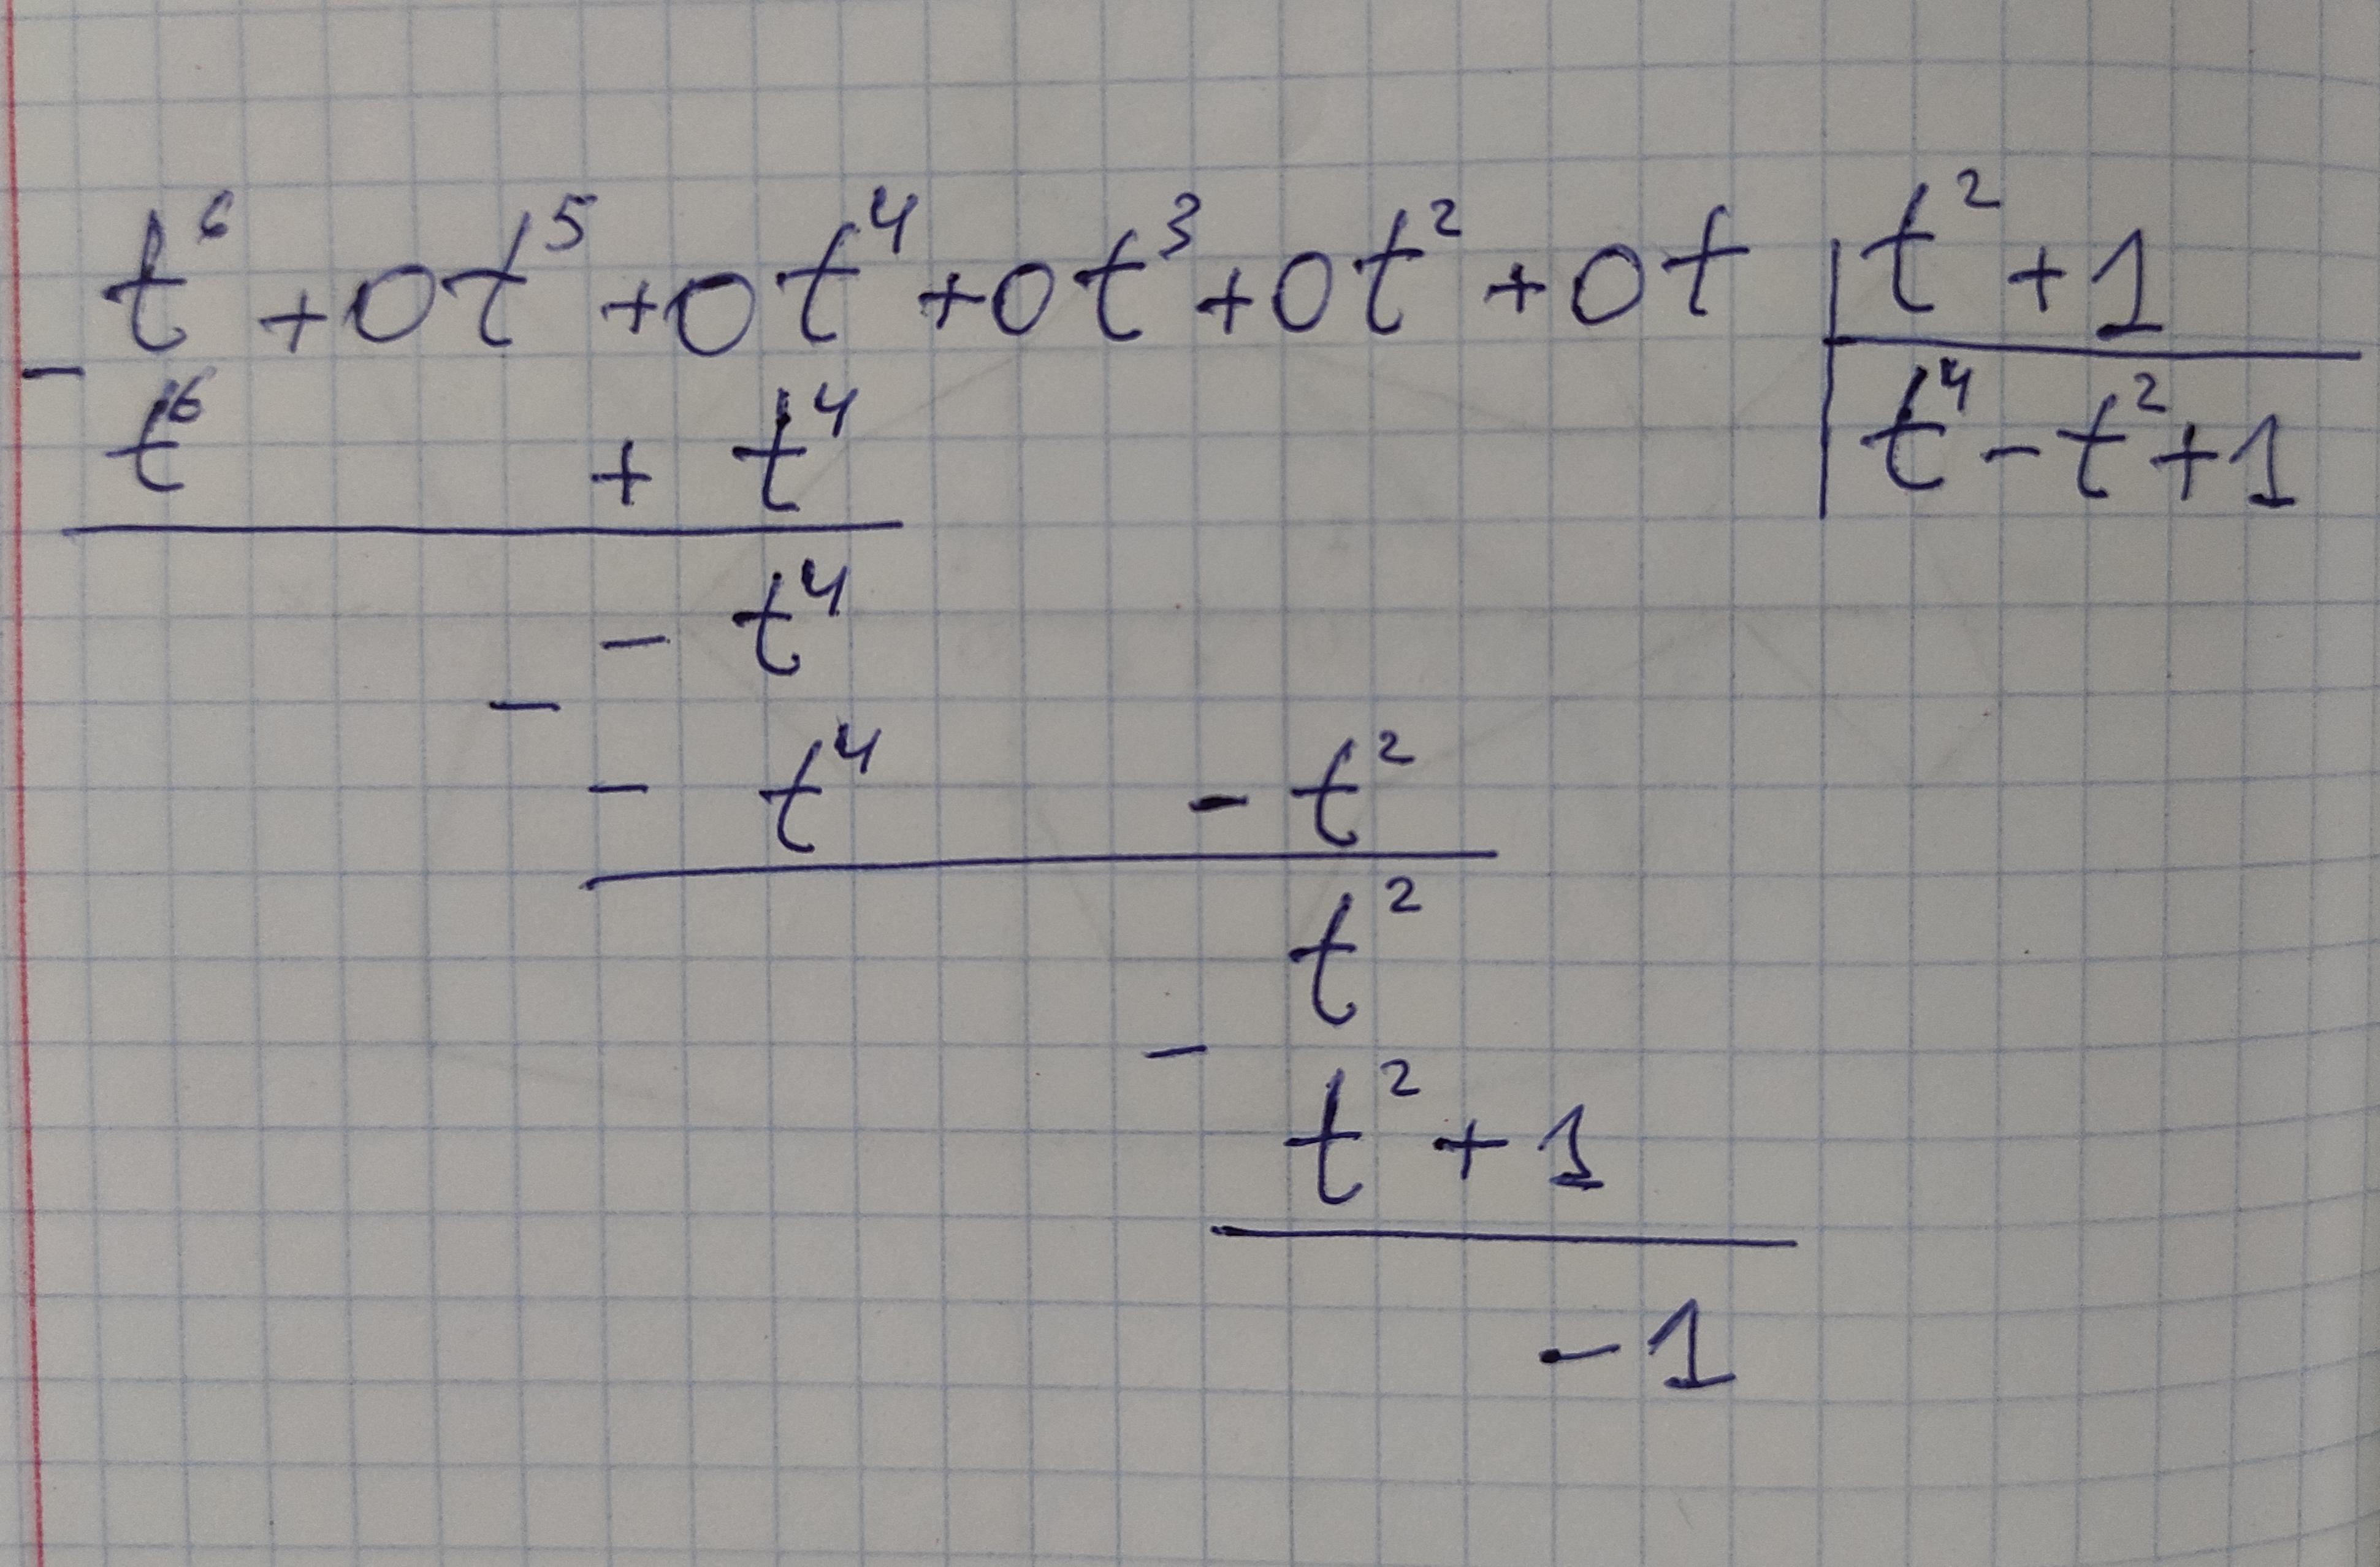 t⁶ + 0t⁵ + 0t⁴ + 0t³ + 0t² + 0t | t² + 1
−
t⁶ + t⁴ | t⁴ − t² + 1
− t⁴
−
− t⁴ − t²
t²
−
t² + 1
− 1